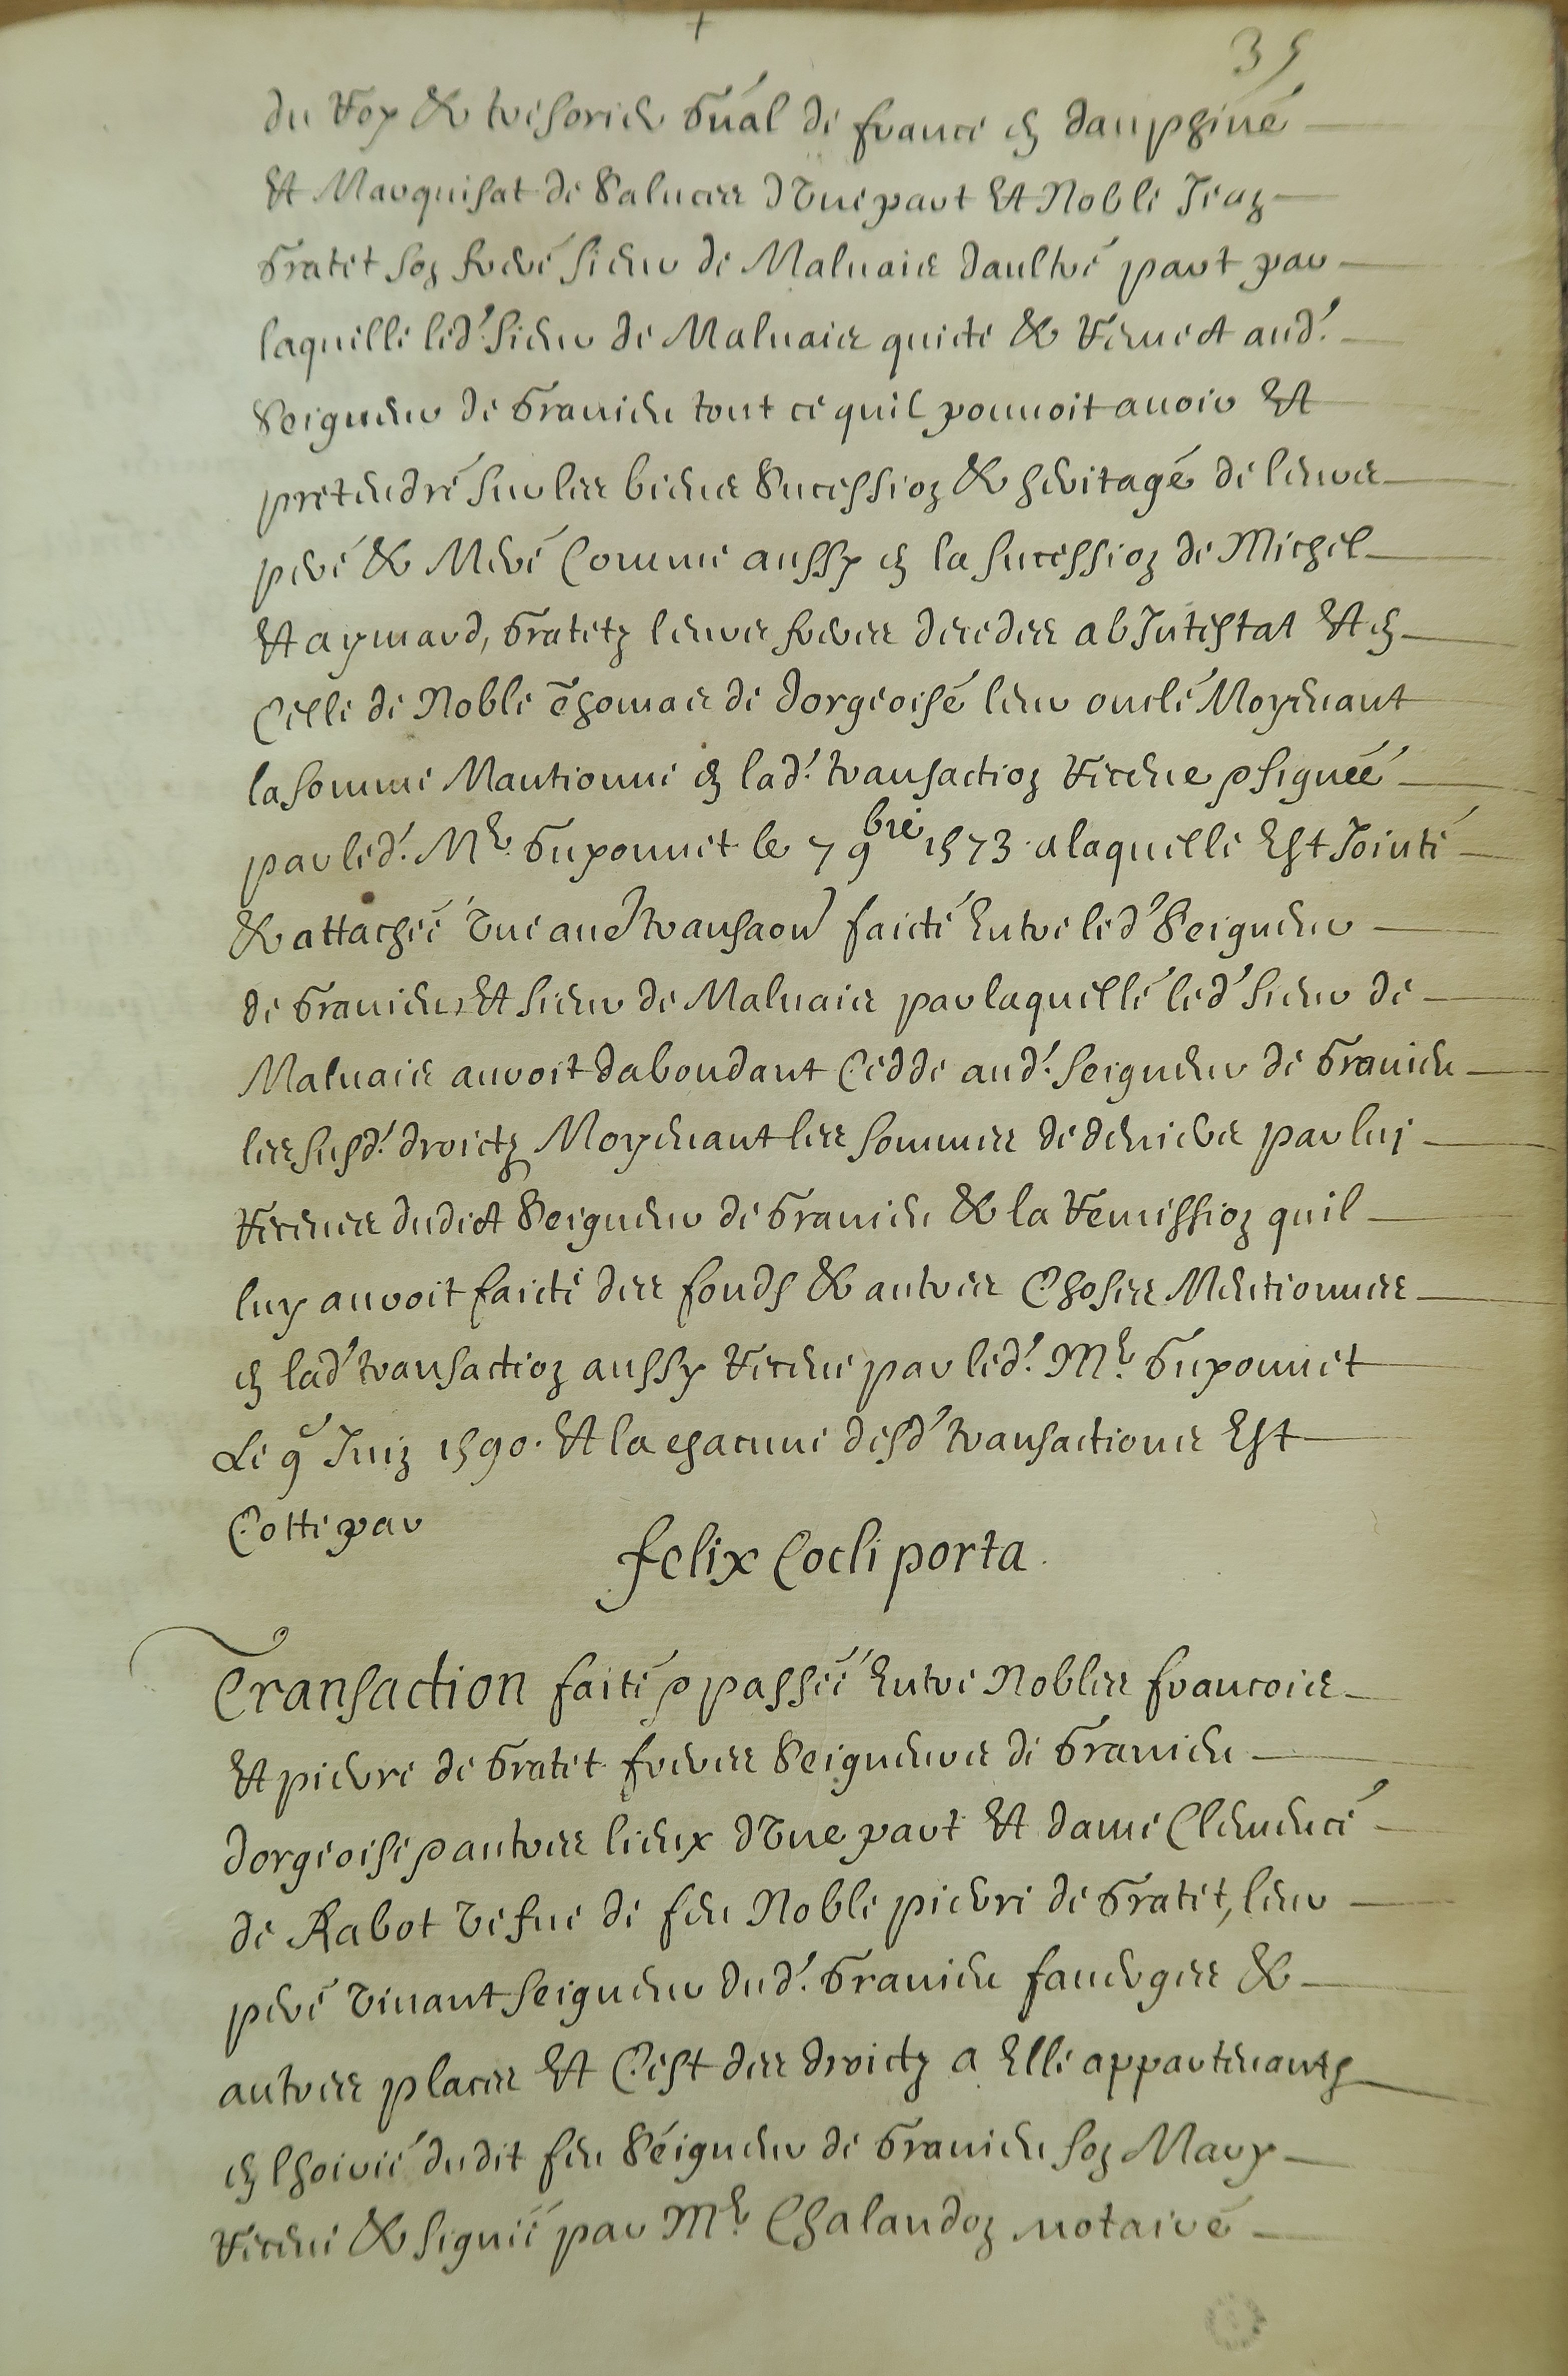 +
35
du Roy & tresorier gnãl de france en dauphiné
Et Marquisat de Saluces d'une part Et Noble Jean
Gratet son frere sieur de Maluais daultre part par
laquelle led.' sieur de Maluais quicte & remect aud.'
Seigneur de Granieu tout ce quil pouuoit auoir Et
pretendre sur les biens Sucession & heritage de leurs
pere & Mere Comme aussy en la sucession de Michel
Et aymard, Gratetz leurs freres decedes ab Intestat Et en
Celle de Noble Thomas de dorgeoise leur oncle Moyenant
la somme Mantionne en lad.' transaction receue & signeé
par led.' Mr. Guponnet le 7 9bre 1573. a laquelle Est Jointe
& attacheé vne aue transaon faicte Entre led' Seigneur
de Granieu, Et sieur de Maluais par laquelle led' sieur de
Maluais auroit dabondant Cedde aud.' seigneur de Granieu
les susd.' droictz Moyenant les sommes de deniers par luy
receues dudict Seigneur de Granieu & la remission quil
luy auroit faicte des fonds & autres Choses Mentionnees
en lad' transaction aussy receue par led.' Mr. Guponnet
Le 9e Juin 1590. Et la chacune desd' transactions Est
Cotte par
felix Coeli porta.
Transaction faite & passeé Entre Nobles francois
Et pierre de Gratet freres Seigneurs de Granieu
dorgeoise & autres lieux d'une part Et dame Clemence
de Rabot vefue de feu Noble pierre de Gratet, leur
pere viuant seigneur dud.' Granieu fauerges &
autres places Et C'est des droictz a Elle appartenants
en lhoirie dudit feu Seigneur de Granieu son Mary
receue & signeé par Mr. Chalandon notaire